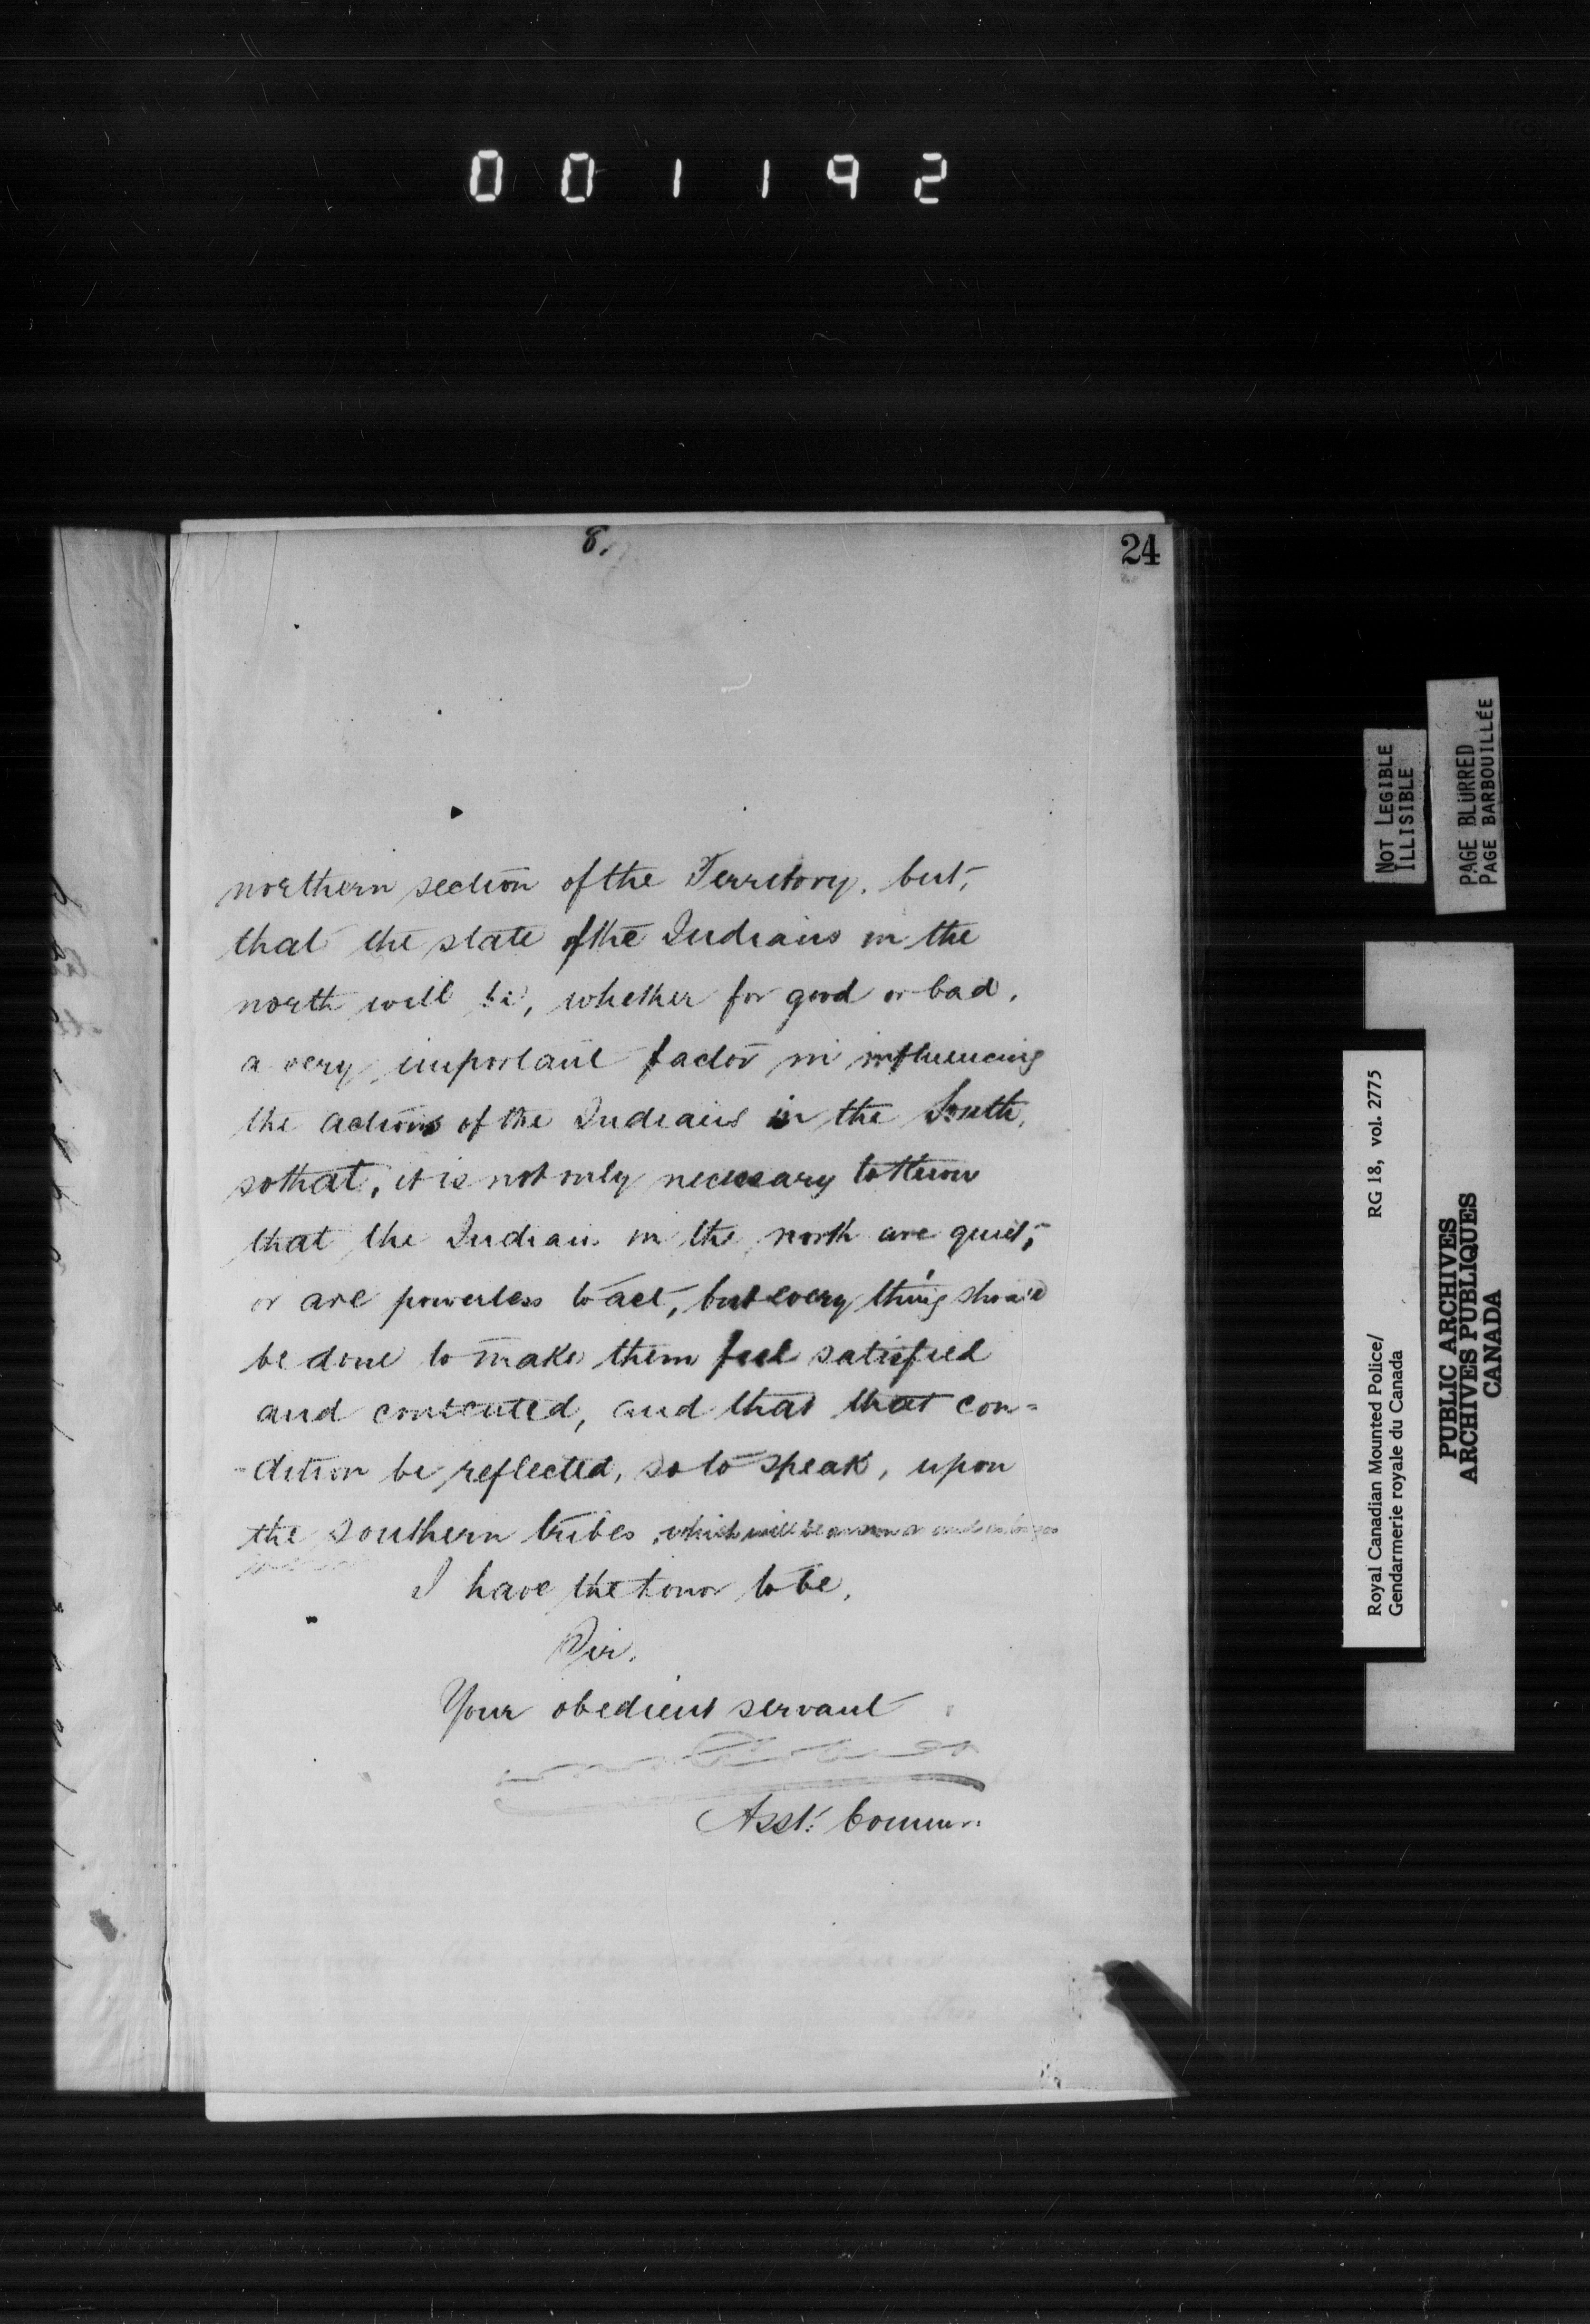 001192
8.
24
northern section of the Territory. but,
that the state of the Indians in the
north will be, whether for good or bad,
a very important factor in influencing
the actions of the Indians in the South,
so that, it is not only necessary to
that the Indians in the north are quiet,
or are powerless to act, but every thing should
be done to make them feel satisfied
and contented, and that that con=
-dition be reflected, so to speak, upon
the southern tribes, which will be
I have the honor to be,
Sir,
Your obedient servant
Asst: Commr.
NOT LEGIBLE
ILLISIBLE
PAGE BLURRED
PAGE BARBOUILLÉE
Royal Canadian Mounted Police/ RG 18, vol. 2775
Gendarmerie royale du Canada
PUBLIC ARCHIVES
ARCHIVES PUBLIQUES
CANADA